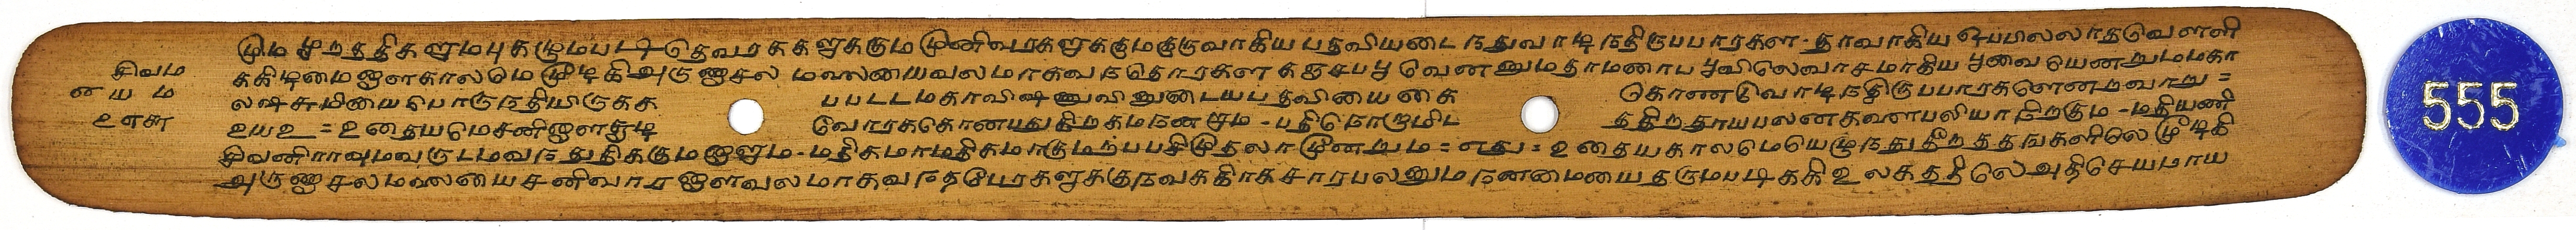 மும மூறத்திகளுமபுகழுமபடி தெவரககளுககும முனிவரகளுககுமகுருவாகிய பதவியடைநதுவாடிநதிருபபாரகள - தாவாகிய ஒபபிலலாதவெளளி
சிவம
ககிடிமைஞளகாலமெ மூழகிஅருணாசல மலையைவலமாகவநதொரகள கஞசபபூ வெனனுமதாமணாபபூவிலெவாசமாகிய பூவை யெனறுமமகா
யம
லஷசுமியைபொருநதியிருகக பபடடமகாவிஷணுவினுடையபதவியைகை கொணடுவொடிநதிருபபாரகளெனறவாறு =
உளசு
உயஉ = உதையமெசனிஞளதுடி வோரககொணயதுகிறகமநனளும - பதிதொறுமிட ததிறதாயபலனகலைபலியாநிறகும - மதியணி
சிவனிராவுமவருடமவநதுதிககுமஞளும - மதிகமாமதிகமாகுமறபபசிமுதலாமூனறும = எது = உதையகாலமெயெழுநதுதீறததஙகளிலெ மூழகி
அருணாசலமலையைசனிவாரஞளவலமாகவநதபேரகளுககுநவககிரகசாரபலனும நனமையைதருமபடிககி உலகததிலெஅதிசெயமாய
555